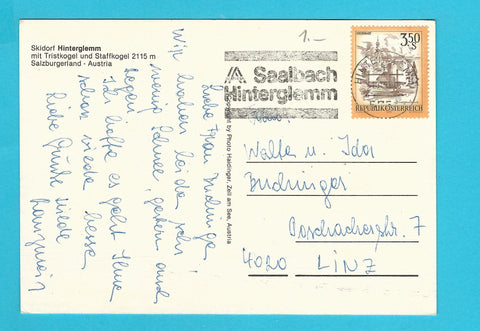 Skidorf Hinterglemm
mit Tristkogel und Staffkogel 2115 m
Salzburgerland - Austria
1.-
Saalbach
Hinterglemm
3.50
S
REPUBLIK ÖSTERREICH
Copyright by Photo Haidinger, Zell am See, Austria
Liebe Frau
Wir haben leider sehr
wenig Schnee, gestern
Regen.
Ich hoffe es geht Ihnen
schon wieder besser
Liebe Grüße
Walter u. Ida
Budninger
7
4020 LINZ